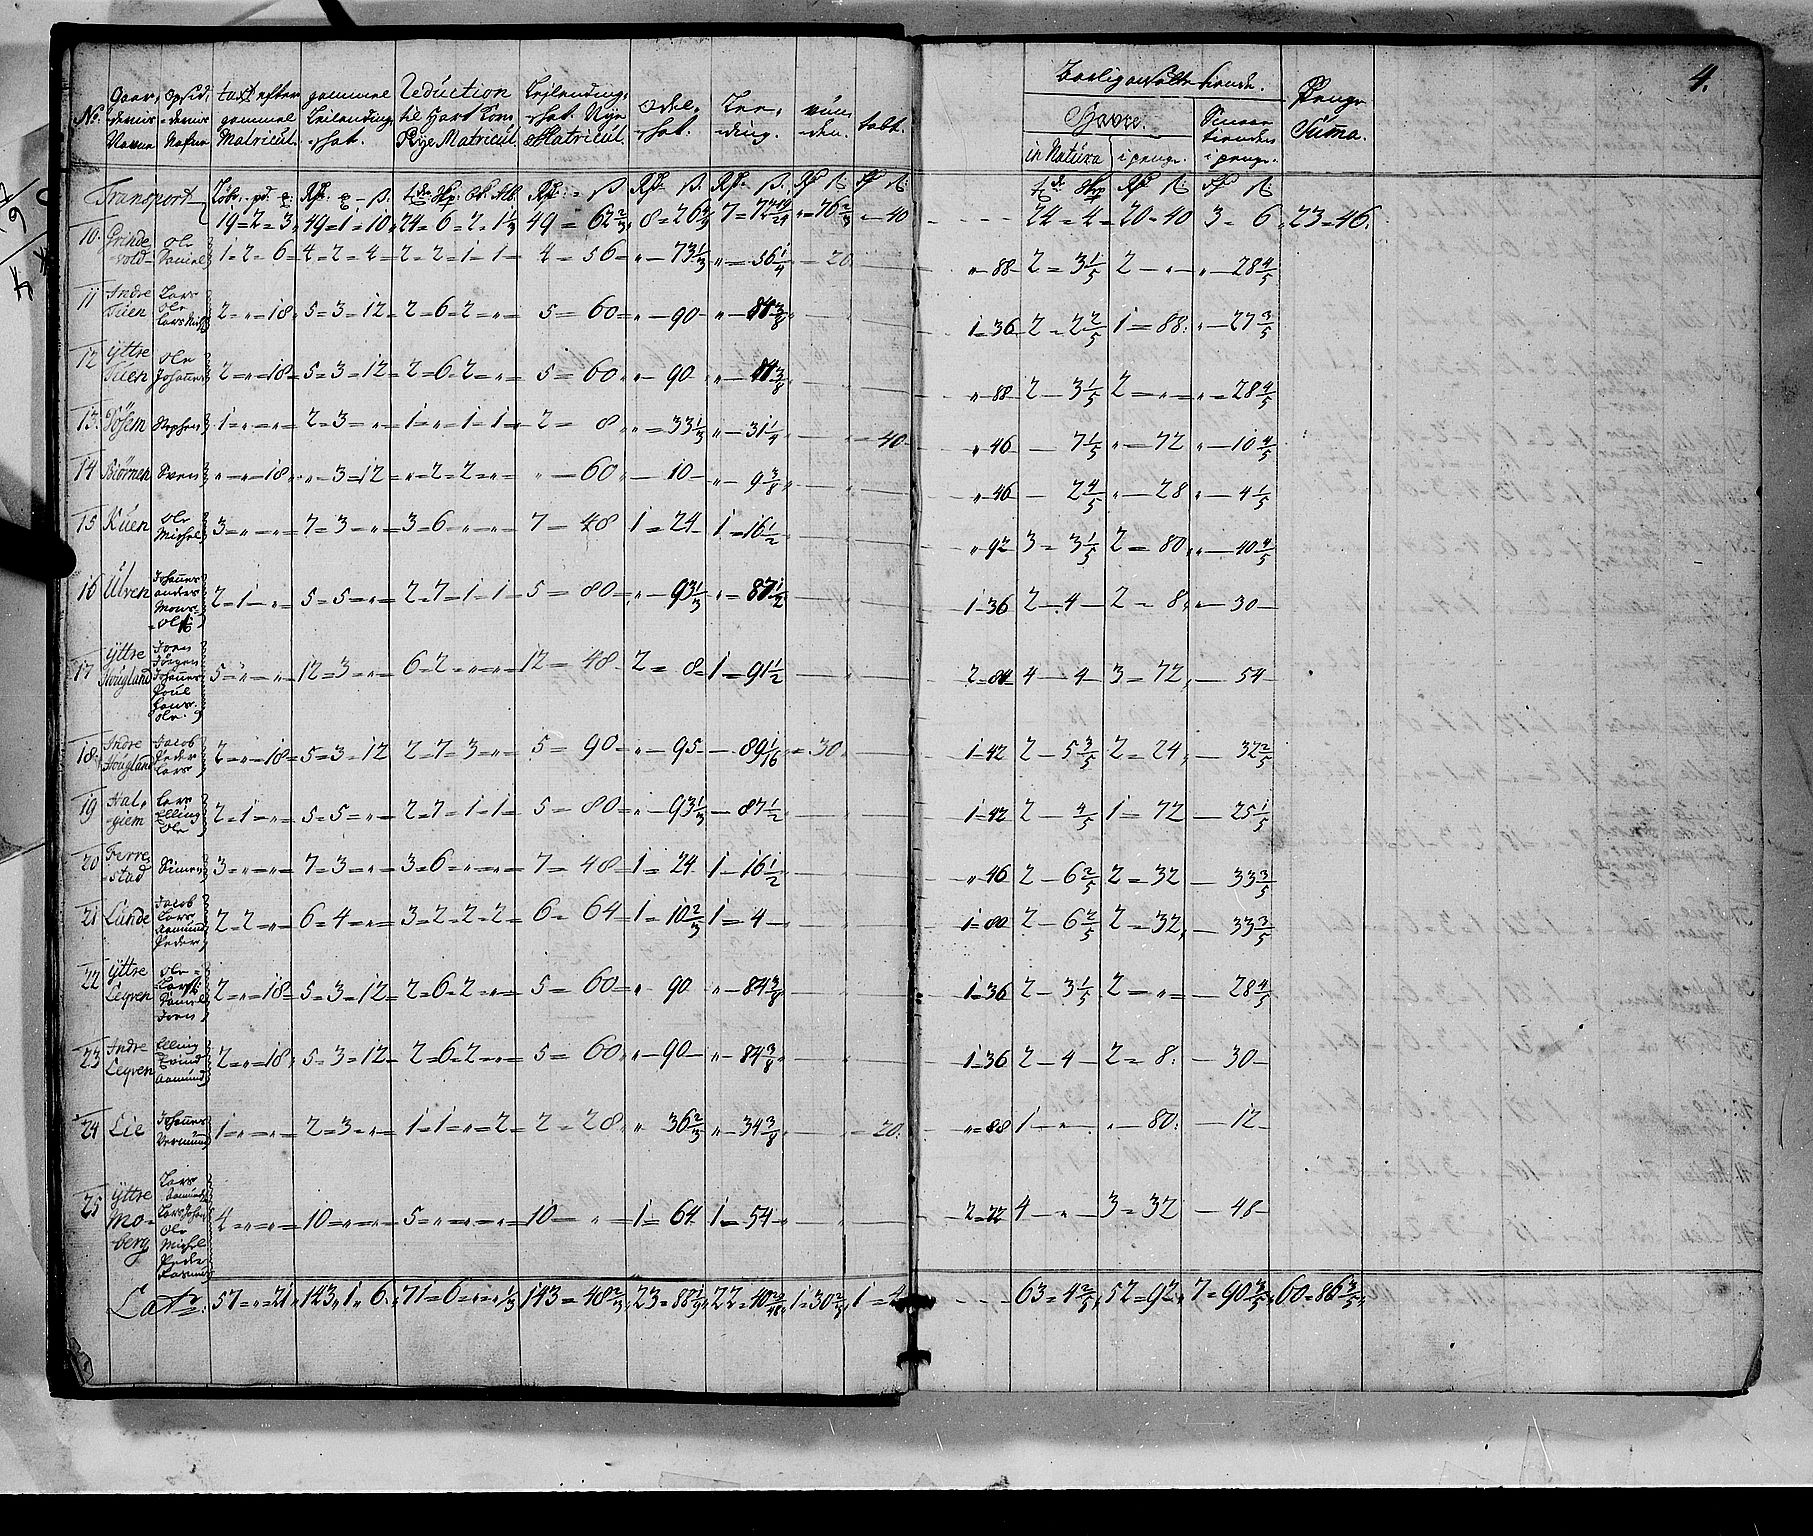 4.
No. Gaardernis Navne Opsid: dernis Nafne taxt efter gammel Matricul. gammel Leilending skat. Reduction til Hart Korn Nye Matricul. Leylending skat. Nye Matricul. Odel skat. Leding. talt.
Havre. in Natura i penge. i penge. Penge Suma.
Transport 19=2=3 49=1=10 24=6=2=1 1/3 49=62 2/3 8=26 =76 2/3 =40 24=4= 20=40 3=6 23=46.
10. Grinde vold Ole Daniel 1=2=6 4=2=4 2=2=1=1 4=56 "=73 1/3 "=56 1/4 =20 "=88 2=3 1/5 2=" "=28 4/5
11 Indre Tuen Lars Ole 2="=18 5=3=12 2=6=2=" 5=60 "=90 "=84 3/8 1=36 2=2 2/5 1=88 "=27 3/5
12 Yttre Tuen Ole Johannes 2="=18 5=3=12 2=6=2=" 5=60 "=90 "=88 2=3 1/5 2=" "=28 4/5
13. Døsem Stephen 1="=" 2=3=" 1="=1=1 2=8 "=33 1/3 "=31 1/4 =40 "=46 7 1/5 "=72 "=10 4/5
14 Biørnen Sven "="=18 "=3=12 "=2=2=" "=60 "=10 "=9 3/8 "=46 2 4/5 "=28 "=4 1/5
15 Kuen Ole Michel 3="=" 7=3=" 3=6="=" 7=48 1=24 1=16 1/2 "=92 3=3 1/5 2=80 "=40 4/5
16 Ulven Johannes anders Mons Ole 2=1=" 5=5=" 2=7=1=1 5=80 "=93 1/3 "=87 1/2 1=36 2=4 2=8 "=30
17 Yttre Hougland Joen Jørgen Johannes Poul Hans Ole 5="=" 12=3=" 6=2="=" 12=48 2=8 1=91 1/2 2=84 4=4 3=72 54
18. Indre Hougland Jacob Peder Lars 2="=18 5=3=12 2=7=3=" 5=90 "=95 89 1/16 =30 1=42 2=5 3/5 2=24 32 2/5
19 Hal giem Lars Elling Ole 2=1=" 5=5=" 2=7=1=1 5=80 "=93 1/3 87 1/2 1=42 2 4/5 1=72 25 1/5
20 Ferre stad Simen 3="=" 7=3=" 3=6="=" 7=48 1=24 1=16 1/2 "=46 2=6 2/5 2=32 33 3/5
21 Lunde Jacob Lars Aamund Peder 2=2=" 6=4=" 3=2=2=2 6=64 1=10 2/3 1=4 1=80 2=6 2/5 2=32 33 3/5
22 Yttre Legven Ole Lars Daniel Joen 2="=18 5=3=12 2=6=2=" 5=60 " 90 "=84 3/8 1=36 2=3 1/5 2=" 28 4/5
23 Indre Legven Elling Eivind Aamund 2="=18 5=3=12 2=6=2=" 5=60 "=90 "=84 3/8 1=36 2=4 2=8 30
24 Lie Johannes 1="=" 2=3=" 1=1="=2 2=28 " 36 2/3 "=34 3/8 =20 "=88 1=" "=80 12
25 Yttre Mo-berg Lars Aamund Lars Johan Ole Michel Peder Rasmus 4="=" 10="=" 5="="=" 10=" 1=64 1=54 2=22 4=" 3=32 48
Lat 57="=21 143=1=6 71=6="=1/3 143=48 2/3 23=88 1=30 63=4 2/5 52=92 7=90 3/5 60=86 3/5